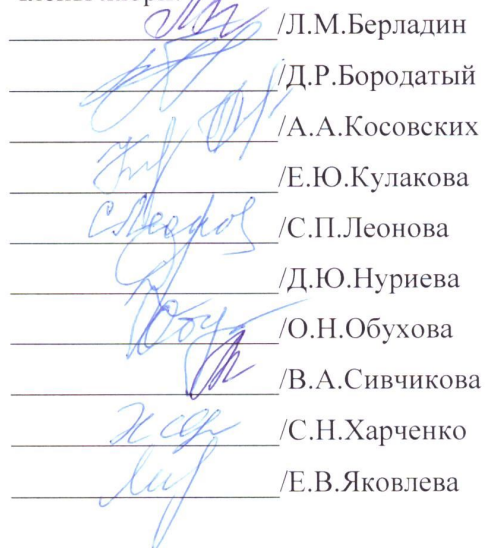 /Л.М.Берладин
/Д.Р.Бородатый
/А.А.Косовских
/Е.Ю.Кулакова
/С.П.Леонова
/Д.Ю.Нуриева
/О.Н.Обухова
/В.А.Сивчикова
/С.Н.Харченко
/Е.В.Яковлева